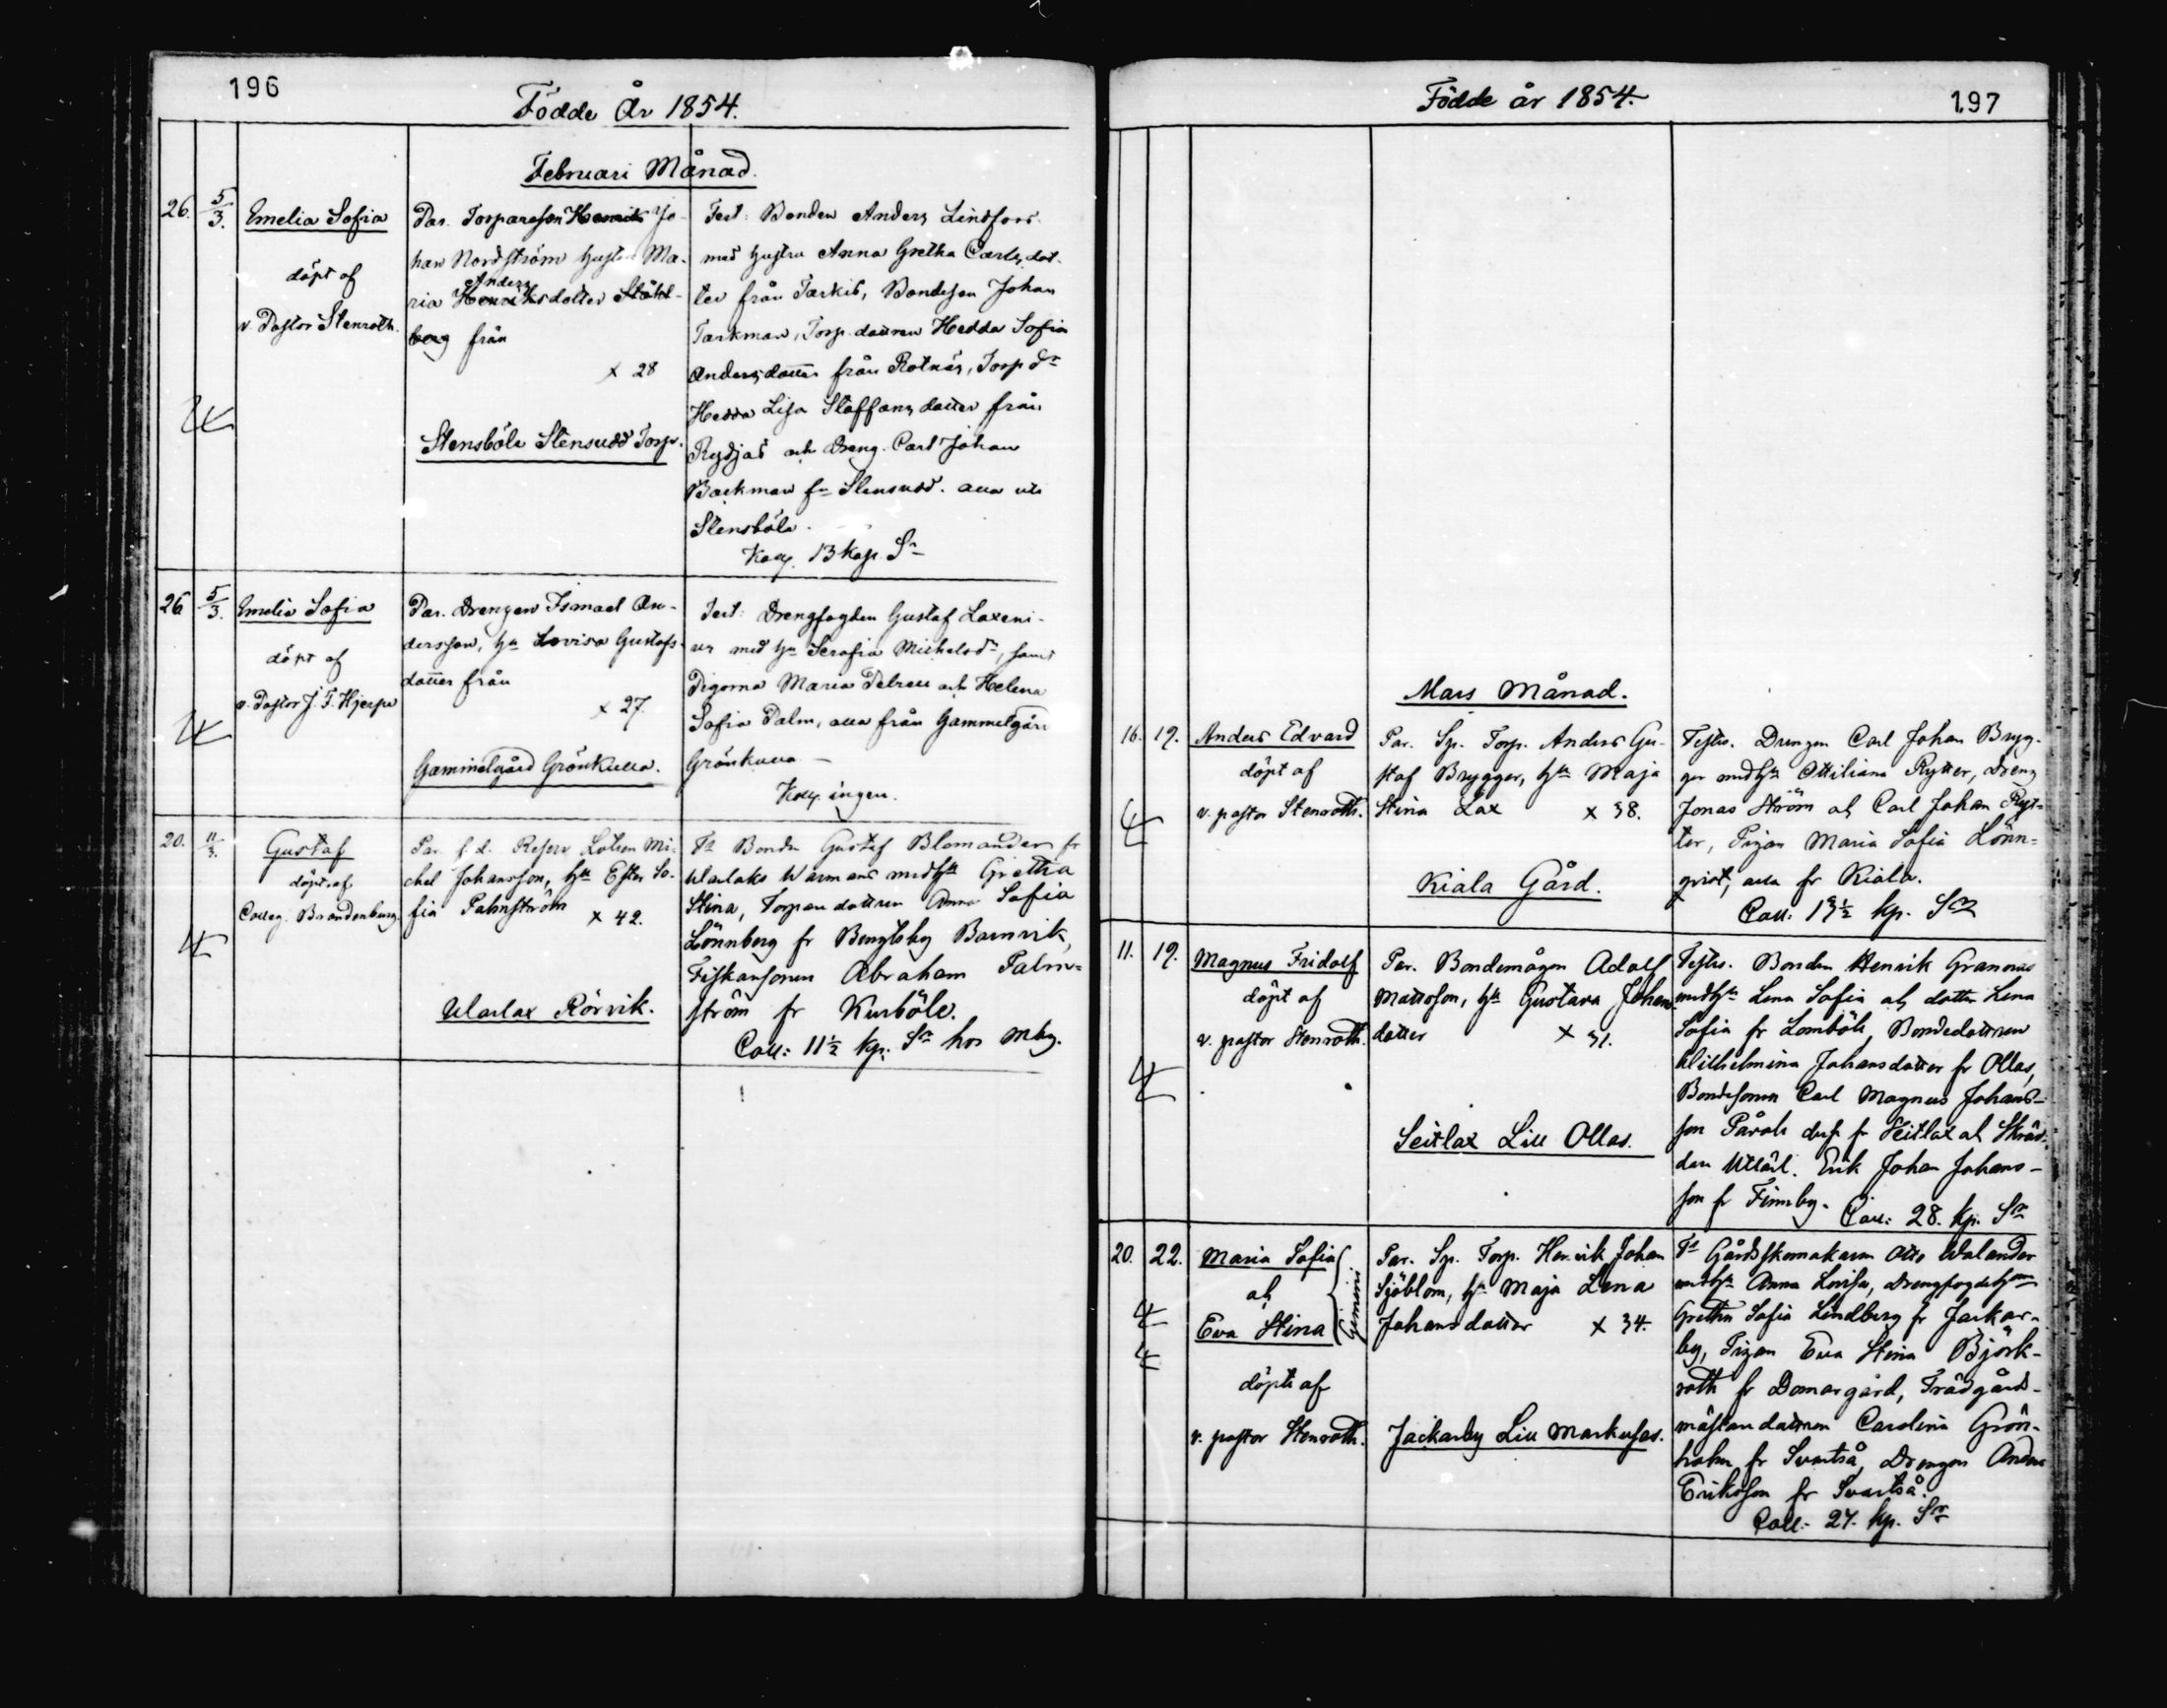 196
Födde År 1854.
Februari Månad.
26. 5/3. Emelia Sofia
döpt af
v. Pastor Stenroth.
Par. Torpareson Henrik Jo-
han Nordström hustru Ma-
Anders
ria Henriksdotter Ståhl-
berg från
x 28
Stensböle Stensudd Torp.
Test: Bonden Anders Lindfors
med hustru Anna Gretha Carls dot-
ter från Tarkis, Bondeson Johan
Tarkman, Torp. dottren Hedda Sofia
Anders dotter från Rotnäs, Torp dr
Hedda Lisa Staffans dotter från
och Dreng. Carl Johan
Backman fn Stensudd. alla uti
Stensböle.
Koll. 13 kop. Sr
26 5/3. Emelia Sofia
döpt af
v. Pastor J. F. Hjerpe
Par. Drengen Ismael An-
dersson, hu Lovisa Gustafs-
dotter från
x 27.
Gammelgård Grönkulla.
Test: Drengfogden Gustaf Laxeni-
us med hu Serafia Michelsdr, samt
Pigorna Maria Pelren och Helena
Sofia Palm, alla från Gammelgård
Grönkulla
Koll. ingen.
20. 11/3. Gustaf
döpt af
Colleg. Brandenburg.
Par. f. d. Reserv Lotsen Mi-
chel Johansson, hu Ester So-
fia Palmström x 42.
Warlax Rörvik.
Ts Bonden Gustaf Blomander fr
Warlaks Warmans med hu Gretha
Stina, Torpare dottren Anna Sofia
Lönnberg fr Bengtsby Barnvik,
Fiskaresonen Abraham Palm-
ström fr Kurböle.
Coll: 11½ kp. Sr hos mbg.
Födde år 1854.
197
Mars Månad.
16. 19. Anders Edvard
döpt af
v. pastor Stenroth.
Par. Sp. Torp. Anders Gu-
staf Brygger, hu Maja
Stina Lax x 38.
Kiala Gård.
Testes. Drengen Carl Johan Bryg-
ger med hu Ottiliana Rytter, Dreng
Jonas Ström och Carl Johan Ryt-
ter, Pigan Maria Sofia Lönn-
qvist, alla fr Kiala.
Coll: 13½ kp. Sr
11. 19. Magnus Fridolf
döpt af
v. pastor Stenroth.
Par. Bondemågen Adolf
Mattsson, hu Gustava Johans
dotter x 31.
Seitlax Lill Ollas.
Testes. Bonden Henrik Granroos
med hu Lena Sofia och dotter Lena
Sofia fr Lomböle, Bondedottren
Wilhelmina Johansdotter fr Ollas,
Bondesonen Carl Magnus Johans-
son Pårals fr Seitlax och Skräd-
dare Erik Johan Johans-
son fr Finnby.
Coll: 28. kp. Sr
20. 22. Maria Sofia
och
Eva Stina
Gemini.
döpte af
v. pastor Stenroth.
Par. Sp. Torp. Henrik Johan
Sjöblom, hu Maja Lena
Johansdotter x 34.
Jackarby Lill Markusas.
Ts Gårdsskomakaren Otto Walander
med hu Anna Lovisa, Drengfogdehun
Gretha Sofia Lindberg fr Jackar-
by, Pigan Eva Stina Björk-
roth fr Domargård, Trädgårds-
mästaredottren Carolina Grön-
holm fr Svartså, Drengen Anders
Eriksson fr Svartså.
Coll: 27. kp. Sr